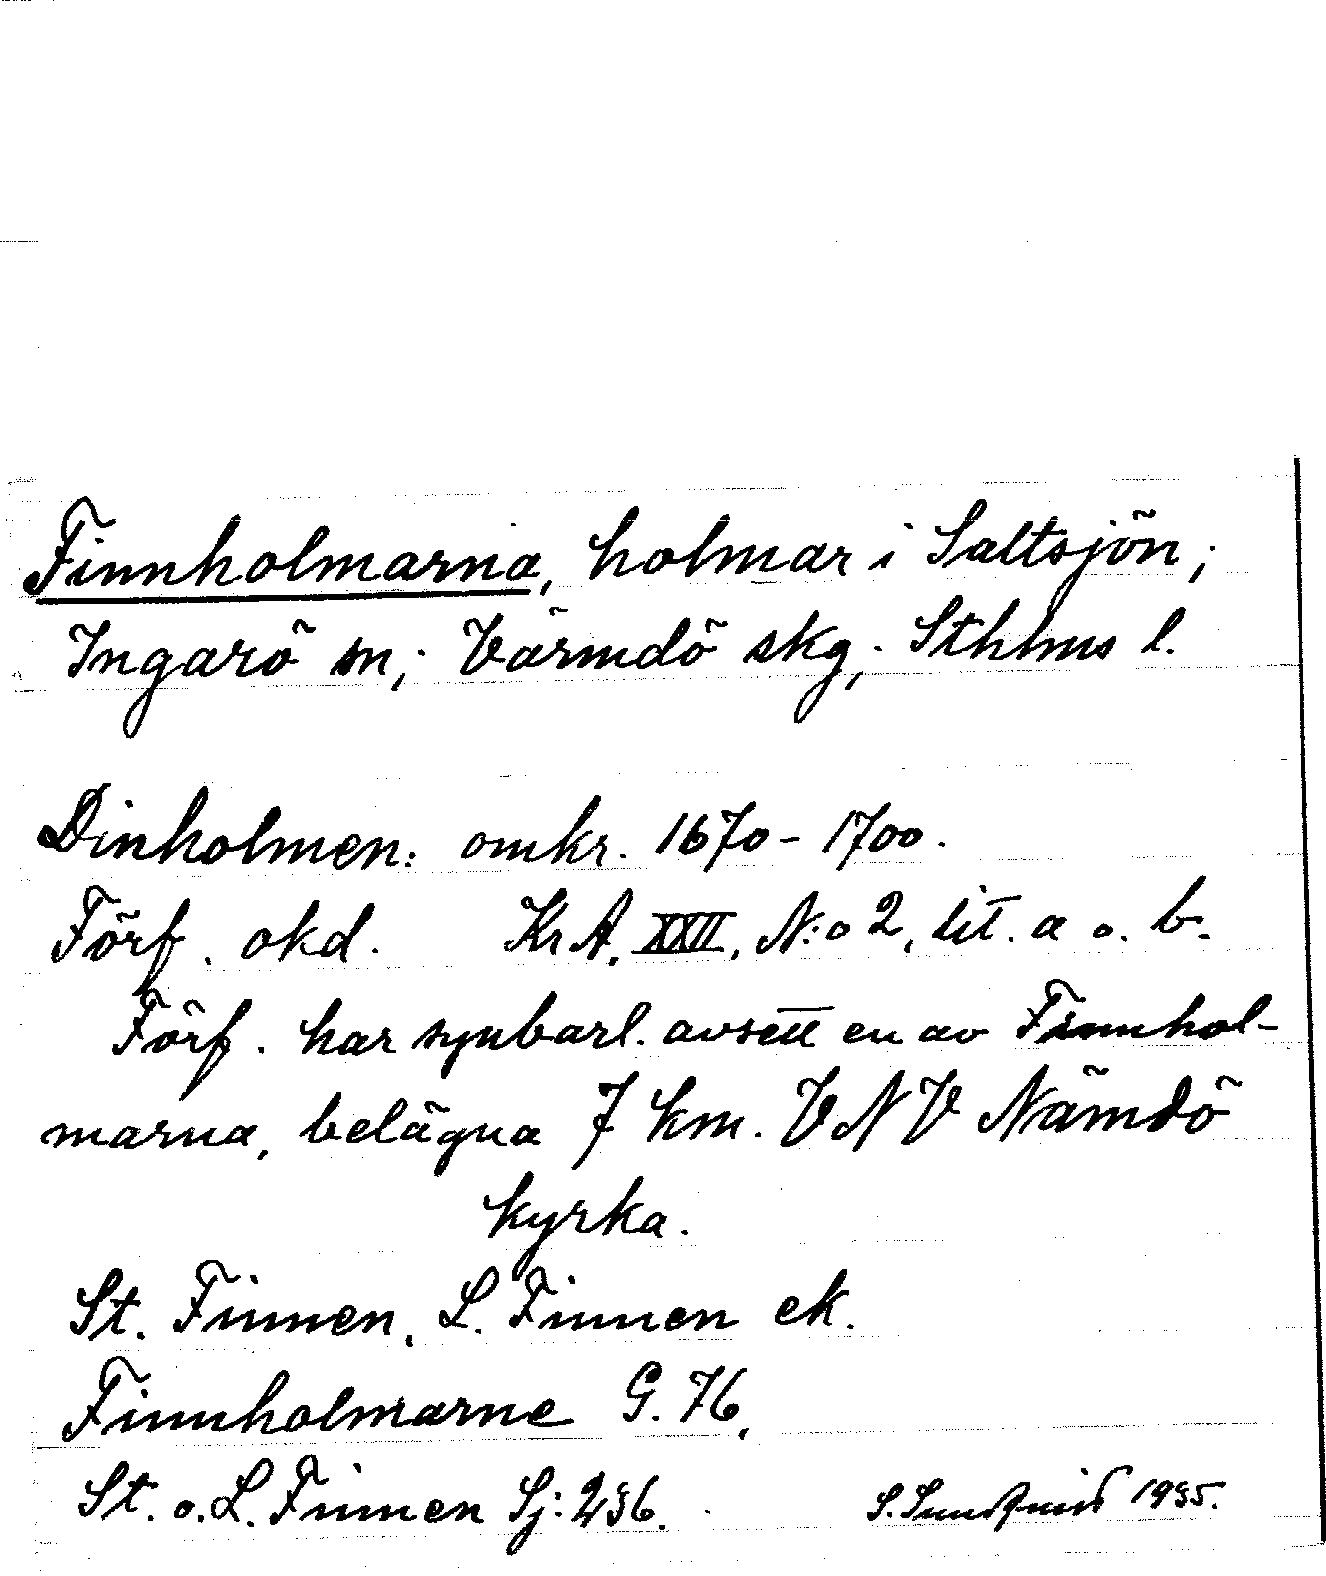 Finnholmarna, holmar i Saltsjön;
Ingarö sn; Värmdö skg; Sthlms l.
Dinholmen: omkr. 1670-1700.
Förf. okd. KrA. XXII, N:o 2, lit. a o. b.
Förf. har synbarl. avsett en av Finnhol-
marna, belägna 7 km. VNV Nämdö
kyrka.
St. Finnen, L. Finnen ek.
Finnholmarne G. 76,
St. o. L. Finnen Sj: 236.
S. Sundquist 1935.